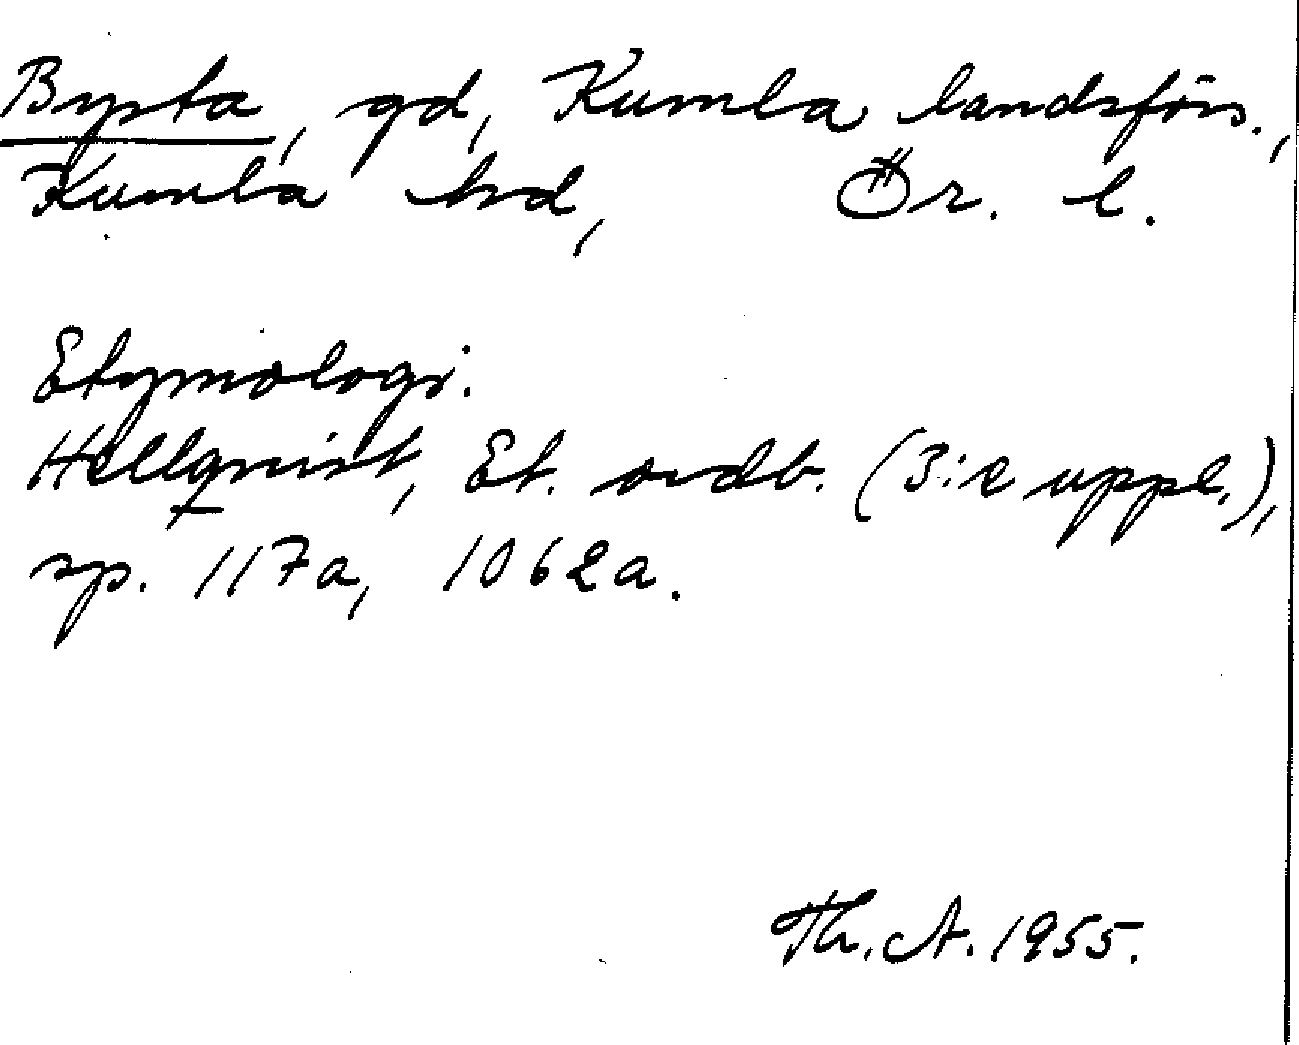 Bysta, gd, Kumla landsförs.,
Kumla hd, Ör. l.
Etymologi.
Hellqvist, Et. ordb. (3:e uppl.),
sp. 117a, 1062a.
Th. A. 1955.